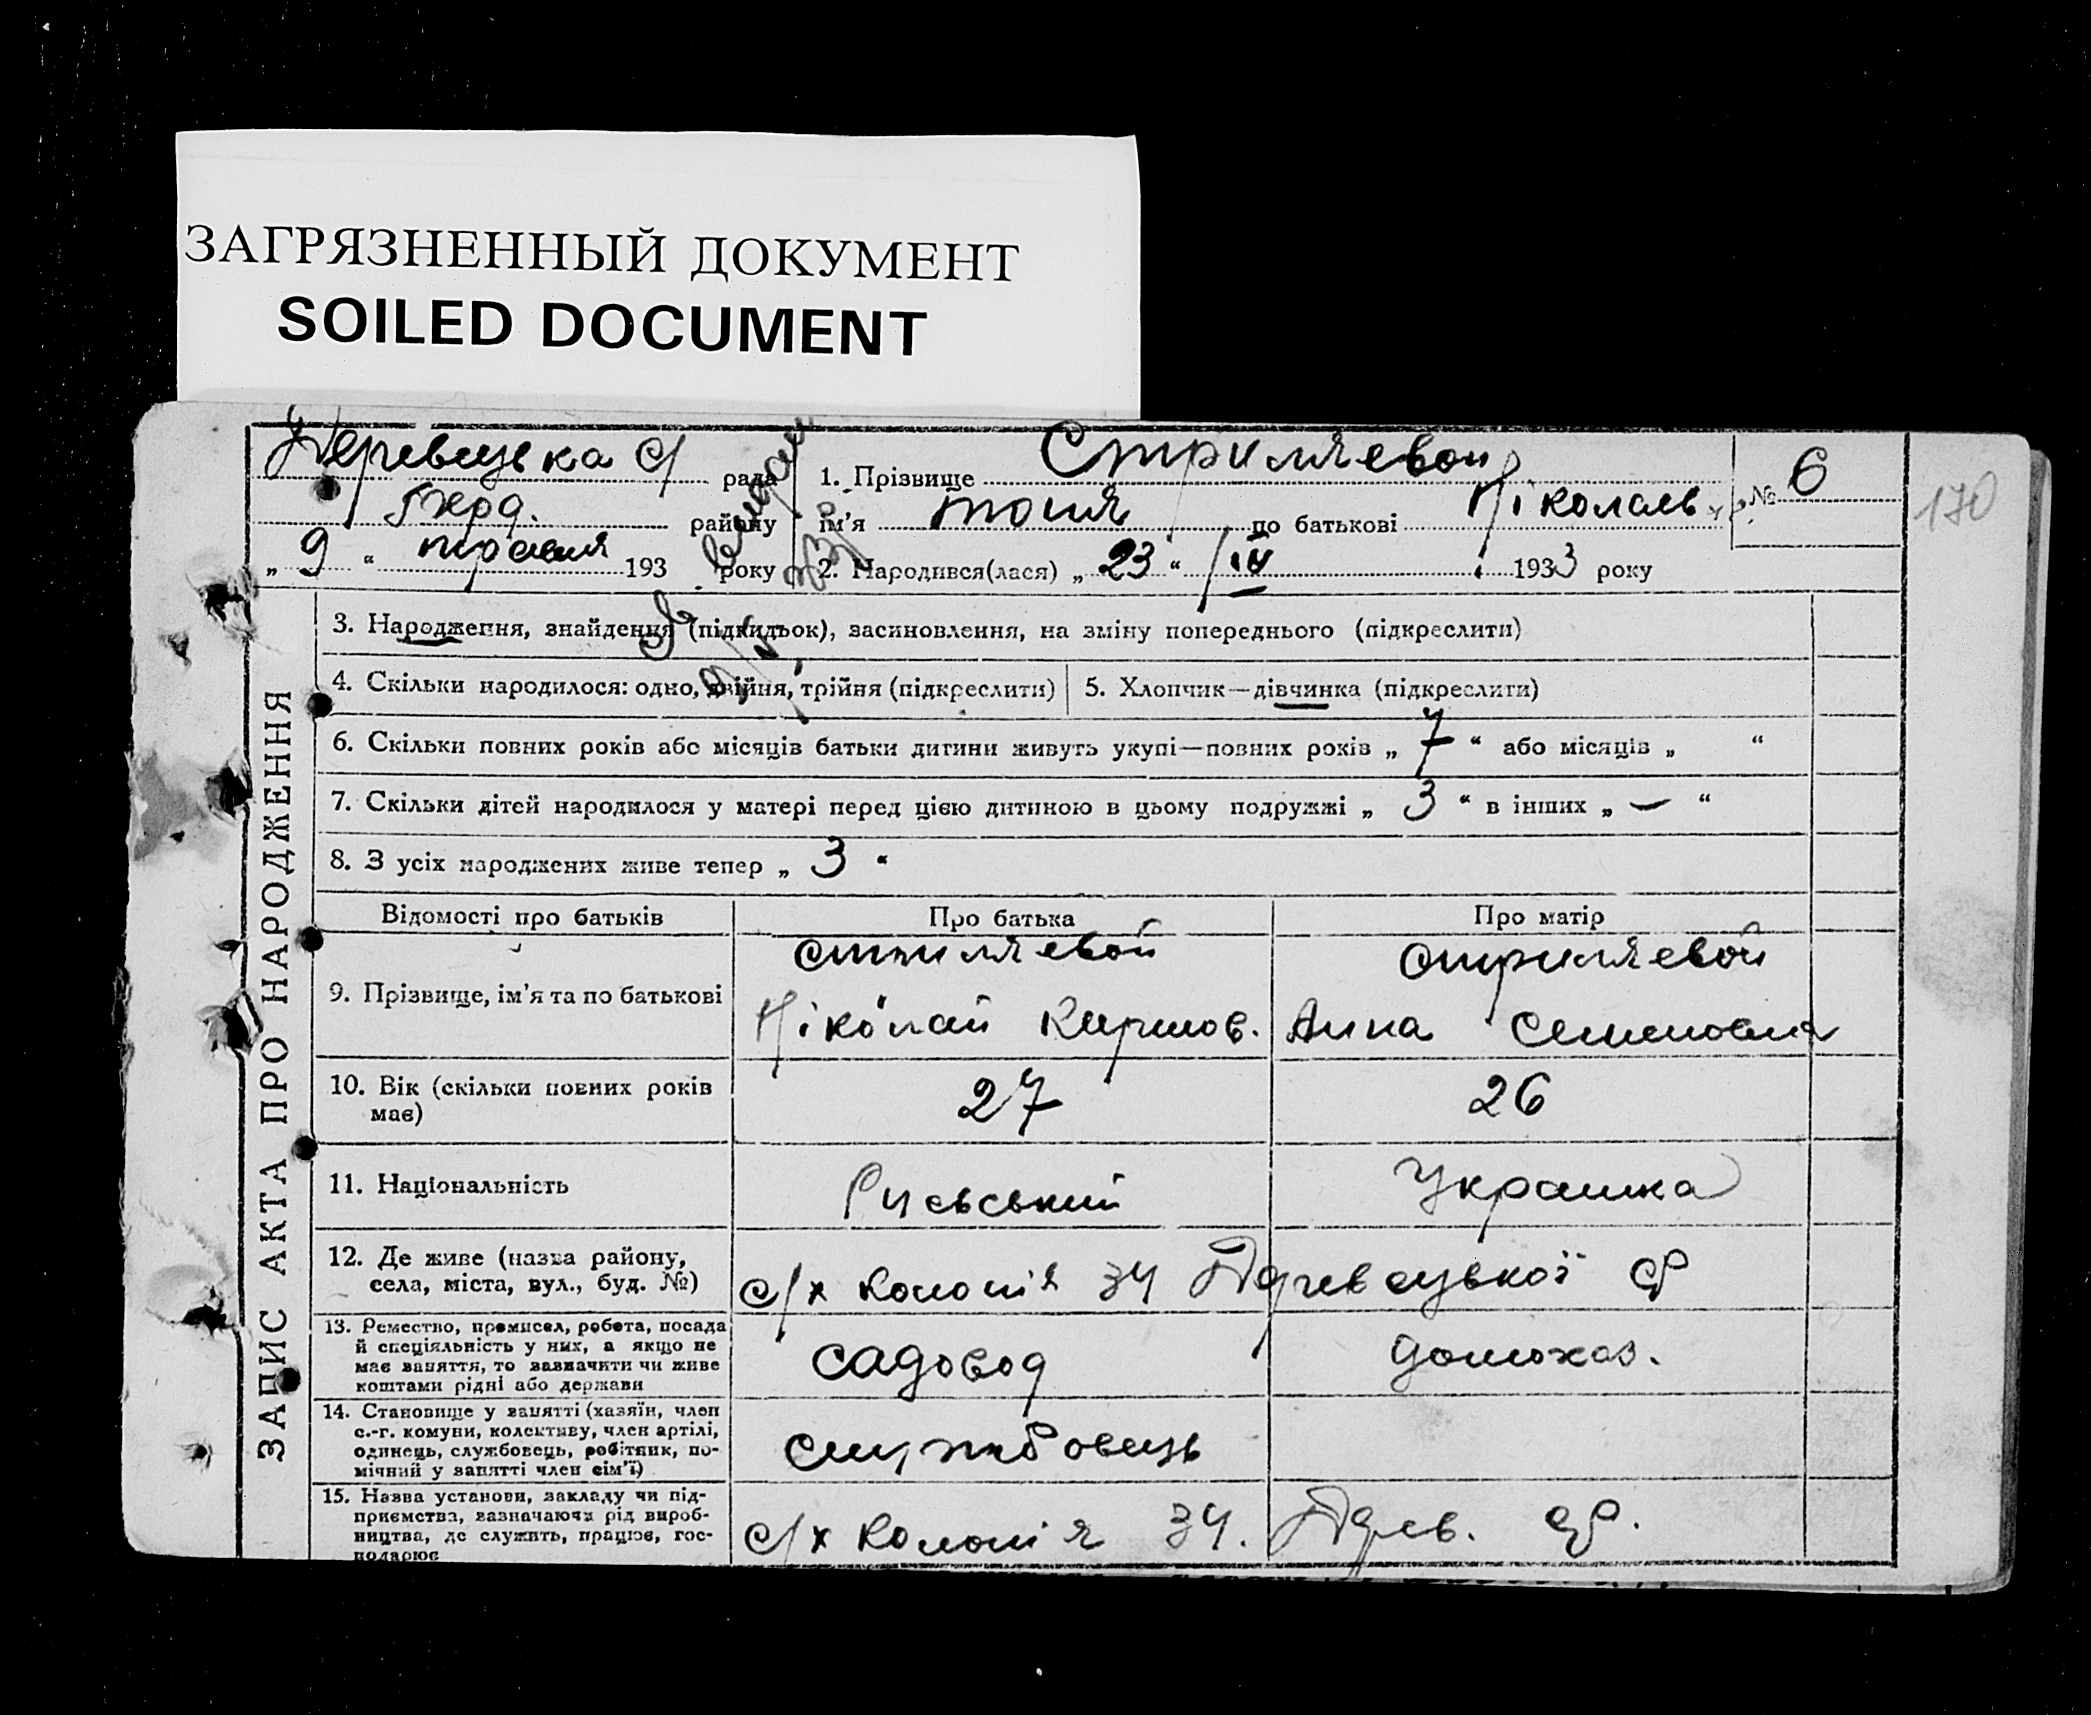 ЗАГРЯЗНЕННЫЙ ДОКУМЕНТ
SOILED DOCUMENT
рада
району
„ 9 “ травня 193 року
1. Прізвище
ім’я тоня по батькові Ніколаев
2. Народився(лася) „ 23 “ IV 1933 року
№ 6
170
ЗАПИС АКТА ПРО НАРОДЖЕННЯ
3. Народження, знайдення (підкидьок), засиновлення, на зміну попереднього (підкреслити)
4. Скільки народилося: одно, двійня, трійня (підкреслити)
5. Хлопчик—дівчинка (підкреслити)
6. Скільки повних років або місяців батьки дитини живуть укупі—повних років „ 7 “ або місяців „ “
7. Скільки дітей народилося у матері перед цією дитиною в цьому подружжі „ 3 “ в інших „ — “
8. З усіх народжених живе тепер „ 3 “
Відомості про батьків
Про батька
Про матір
9. Прізвище, ім’я та по батькові
Ніколай
Анна Семеновна
10. Вік (скільки повних років
має)
27
26
11. Національність
Руський
Украинка
12. Де живе (назва району,
села, міста, вул., буд. №)
с/х колонія ЗЧ
13. Ремество, промисел, робота, посада
й спеціяльність у них, а якщо не
має заняття, то зазначити чи живе
коштами рідні або держави
садовод
домохоз.
14. Становище у занятті (хазяїн, член
с.-г. комуни, колективу, член артілі,
одинець, службовець, робітник, по-
мічний у занятті член сім’ї)
службовець
15. Назва установи, закладу чи під-
приємства, зазначаючи рід вироб-
ництва, де служить, працює, гос-
подарює
с/х колонія ЗЧ.